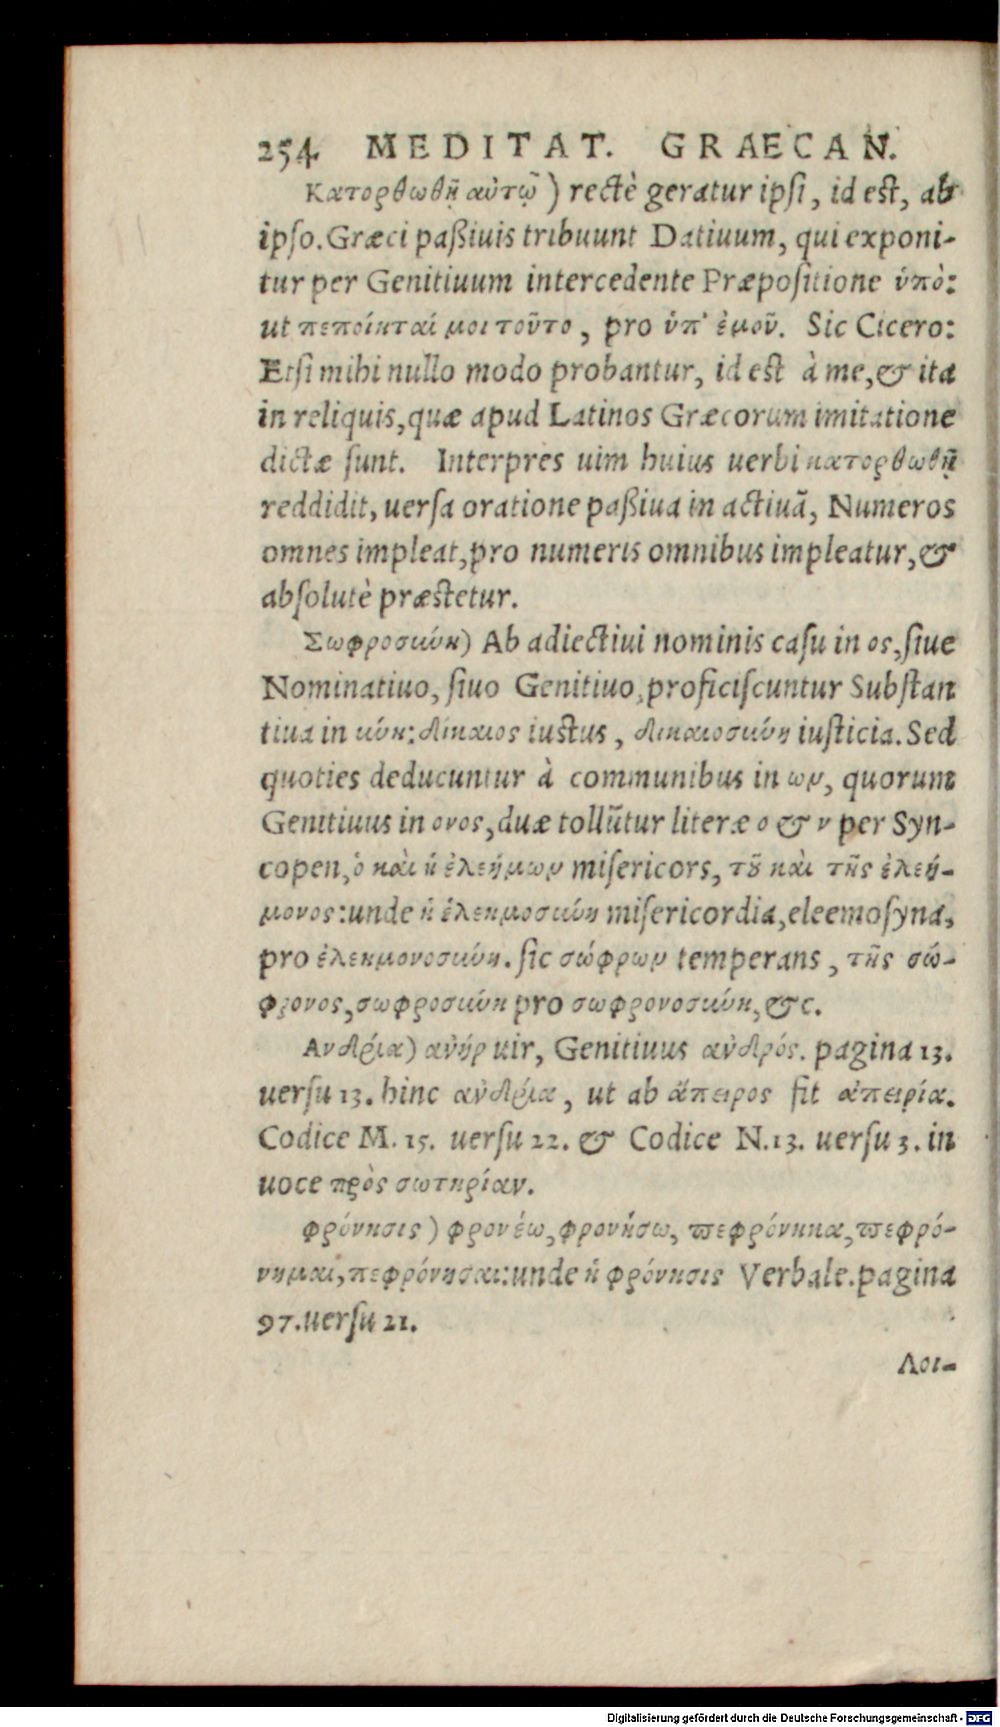 254 MEDITAT. GRAECAN.
Κατορθωθῇ αὐτῷ) rectè geratur ipsi, id est, ab
ipso. Græci paßiuis tribuunt Datiuum, qui exponi-
tur per Genitiuum intercedente Præpositione ὑπὸ:
ut πεποίηταί μοι τοῦτο, pro ὑπ' ἐμοῦ. Sic Cicero:
Etsi mihi nullo modo probantur, id est à me, & ita
in reliquis, quæ apud Latinos Græcorum imitatione
dictæ sunt. Interpres uim huius uerbi κατορθωθῇ
reddidit, uersa oratione paßiua in actiuã, Numeros
omnes impleat, pro numeris omnibus impleatur, &
absolutè præstetur.
Σωφροσύνη) Ab adiectiui nominis casu in ος, siue
Nominatiuo, siuo Genitiuo, proficiscuntur Substan
tiua in σύνη: δίκαιος iustus, δικαιοσύνη iusticia. Sed
quoties deducuntur à communibus in ων, quorum
Genitiuus in ονος, duæ tollũtur literæ ο & ν per Syn-
copen, ὁ καὶ ἡ ἐλεήμων misericors, τȣ͂ καὶ τῆς ἐλεή-
μονος: unde ἡ ἐλεημοσύνη misericordia, eleemosyna,
pro ἐλεημονοσύνη. sic σώφρων temperans, τῆς σώ-
φρονος, σωφροσύνη pro σωφρονοσύνη, &c.
Ανδρία) ανήρ uir, Genitiuus ανδρός. pagina 13.
uersu 13. hinc ανδρία, ut ab ἄπειρος fit ἀπειρία.
Codice M. 15. uersu 22. & Codice N. 13. uersu 3. in
uoce πρὸς σωτηρίαν.
φρόνησις) φρονέω, φρονήσω, πεφρόνηκα, πεφρό-
νημαι, πεφρόνησαι: unde ἡ φρόνησις Verbale. pagina
97. uersu 21.
Λοι-
Digitalisierung gefördert durch die Deutsche Forschungsgemeinschaft - DFG